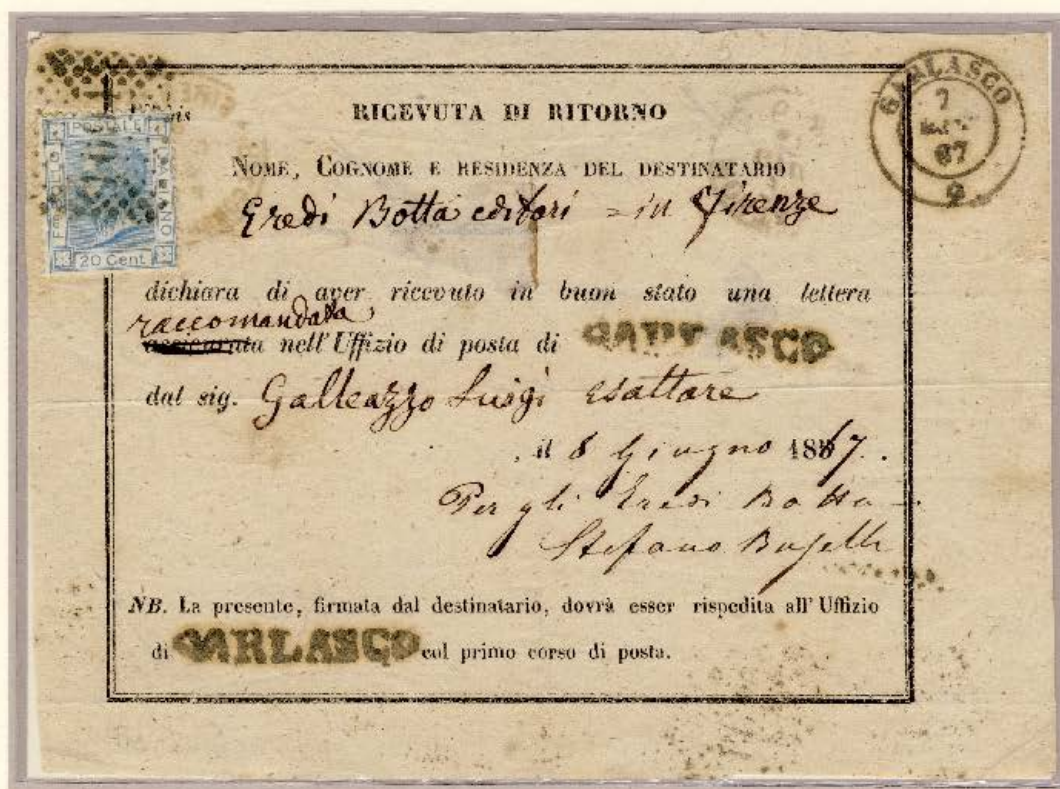 RICEVUTA DI RITORNO
GARLASCO
7
67
NOME, COGNOME E RESIDENZA DEL DESTINATARIO
Eredi Botta editori = in Firenze
20 Cent
dichiara di aver ricevuto in buon stato una lettera
raccomandata
assicurata nell'Uffizio di posta di GARLASCO
dal sig. Galleazzo Luigi esattore
il 8 Giugno 1867.
Per gli Eredi Botta
Stefano
NB. La presente, firmata dal destinatario, dovrà esser rispedita all'Uffizio
di GARLASCO col primo corso di posta.